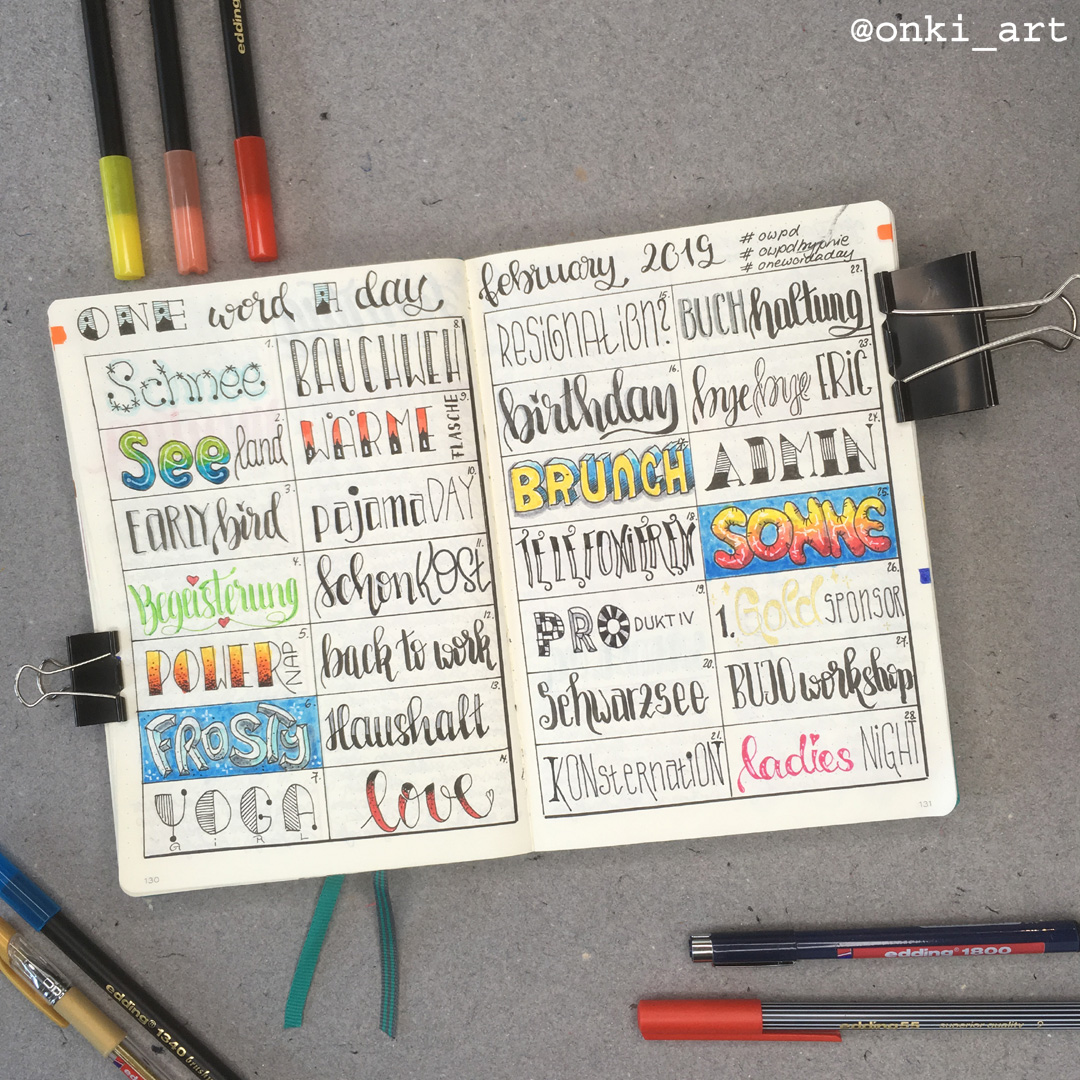 @onki_art
edding
ONE word A day
february 2019
# owpd
# owpdbypnie
# onewordaday
1. Schnee
2. Seeland
3. EARLY bird
4. Begeisterung
5. POWER NAP
6. FROSTY
7. YOGA GIRL
8. BAUCHWEH
9. WÄRME FLASCHE
10. pajama DAY
11. SchonKOSt
12. back to work
13. Haushalt
14. love
15. RESIGNATION?
16. birthday
17. BRUNCH
18. TELEFONIEREN
19. PRODUKTIV
20. Schwarzsee
21. KONSternatiON
22. BUCHhaltung
23. bye bye ERIC
24. ADMIN
25. SONNE
26. 1. Gold SPONSOR
27. BUJO workshop
28. ladies NIGHT
130
131
edding 1800
edding 55 superior quality
edding 1340 brush
edding